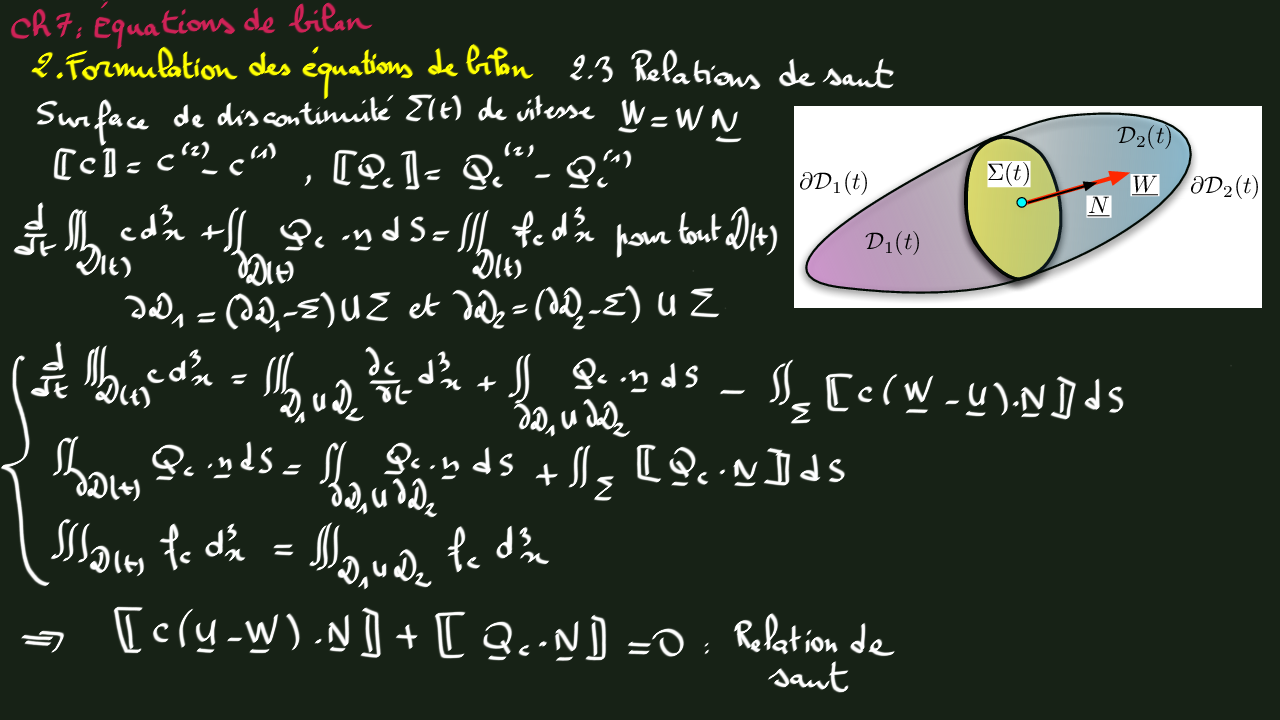 Ch 7: Équations de bilan
2. Formulation des équations de bilan 2.3 Relations de saut
Surface de discontinuité Σ(t) de vitesse W = W N
⟦c⟧ = c⁽²⁾ - c⁽¹⁾ , ⟦Q_c⟧ = Q_c⁽²⁾ - Q_c⁽¹⁾
d/dt ∭_D(t) c d³x + ∬_∂D(t) Q_c · n dS = ∭_D(t) f_c d³x pour tout D(t)
∂D₁ = (∂D₁ - Σ) ∪ Σ et ∂D₂ = (∂D₂ - Σ) ∪ Σ
d/dt ∭_D(t) c d³x = ∭_D₁∪D₂ ∂c/∂t d³x + ∬_∂D₁∪∂D₂ Q_c · n dS - ∬_Σ ⟦c(W - U)·N⟧ dS
∬_∂D(t) Q_c · n dS = ∬_∂D₁∪∂D₂ Q_c · n dS + ∬_Σ ⟦Q_c · N⟧ dS
∭_D(t) f_c d³x = ∭_D₁∪D₂ f_c d³x
⇒ ⟦c(U - W)·N⟧ + ⟦Q_c · N⟧ = 0 : Relation de
saut
D₂(t)
Σ(t)
∂D₁(t)
W
∂D₂(t)
N
D₁(t)